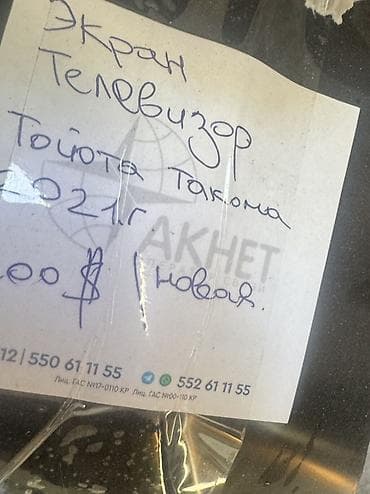 Экран
Телевизор
Тойота Такома
2021г.
00$ / новая.
AKHET
12 | 550 61 11 55
552 61 11 55
Лиц. ГАС №17-0110 КР Лиц. ГАС №00-110 КР